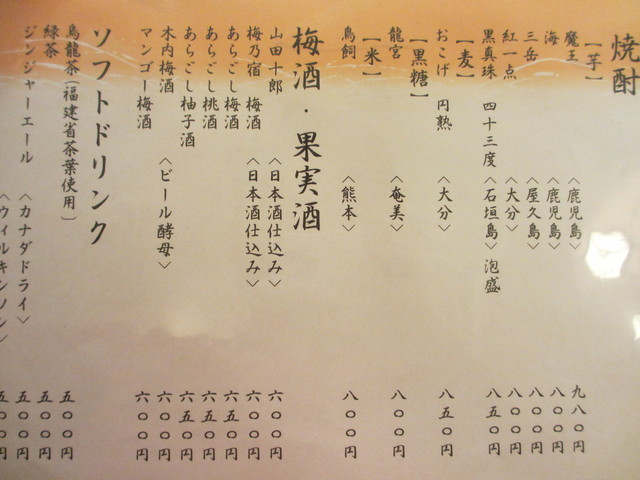 焼酎
【芋】
魔王 〈鹿児島〉 九八〇円
海 〈鹿児島〉 八〇〇円
三岳 〈屋久島〉 八〇〇円
紅一点 〈大分〉 八〇〇円
黒真珠 四十三度 〈石垣島〉泡盛 八五〇円
【麦】
おこげ 円熟 〈大分〉 八五〇円
【黒糖】
龍宮 〈奄美〉 八〇〇円
【米】
鳥飼 〈熊本〉 八〇〇円
梅酒・果実酒
山田十郎 〈日本酒仕込み〉 六〇〇円
梅乃宿 梅酒 〈日本酒仕込み〉 六〇〇円
あらごし梅酒 六五〇円
あらごし桃酒 六五〇円
あらごし柚子酒 六五〇円
木内梅酒 〈ビール酵母〉 六〇〇円
マンゴー梅酒 六〇〇円
ソフトドリンク
烏龍茶（福建省茶葉使用） 五〇〇円
緑茶 五〇〇円
ジンジャーエール 〈カナダドライ〉 五〇〇円
〈ウィルキンソン〉 五〇〇円